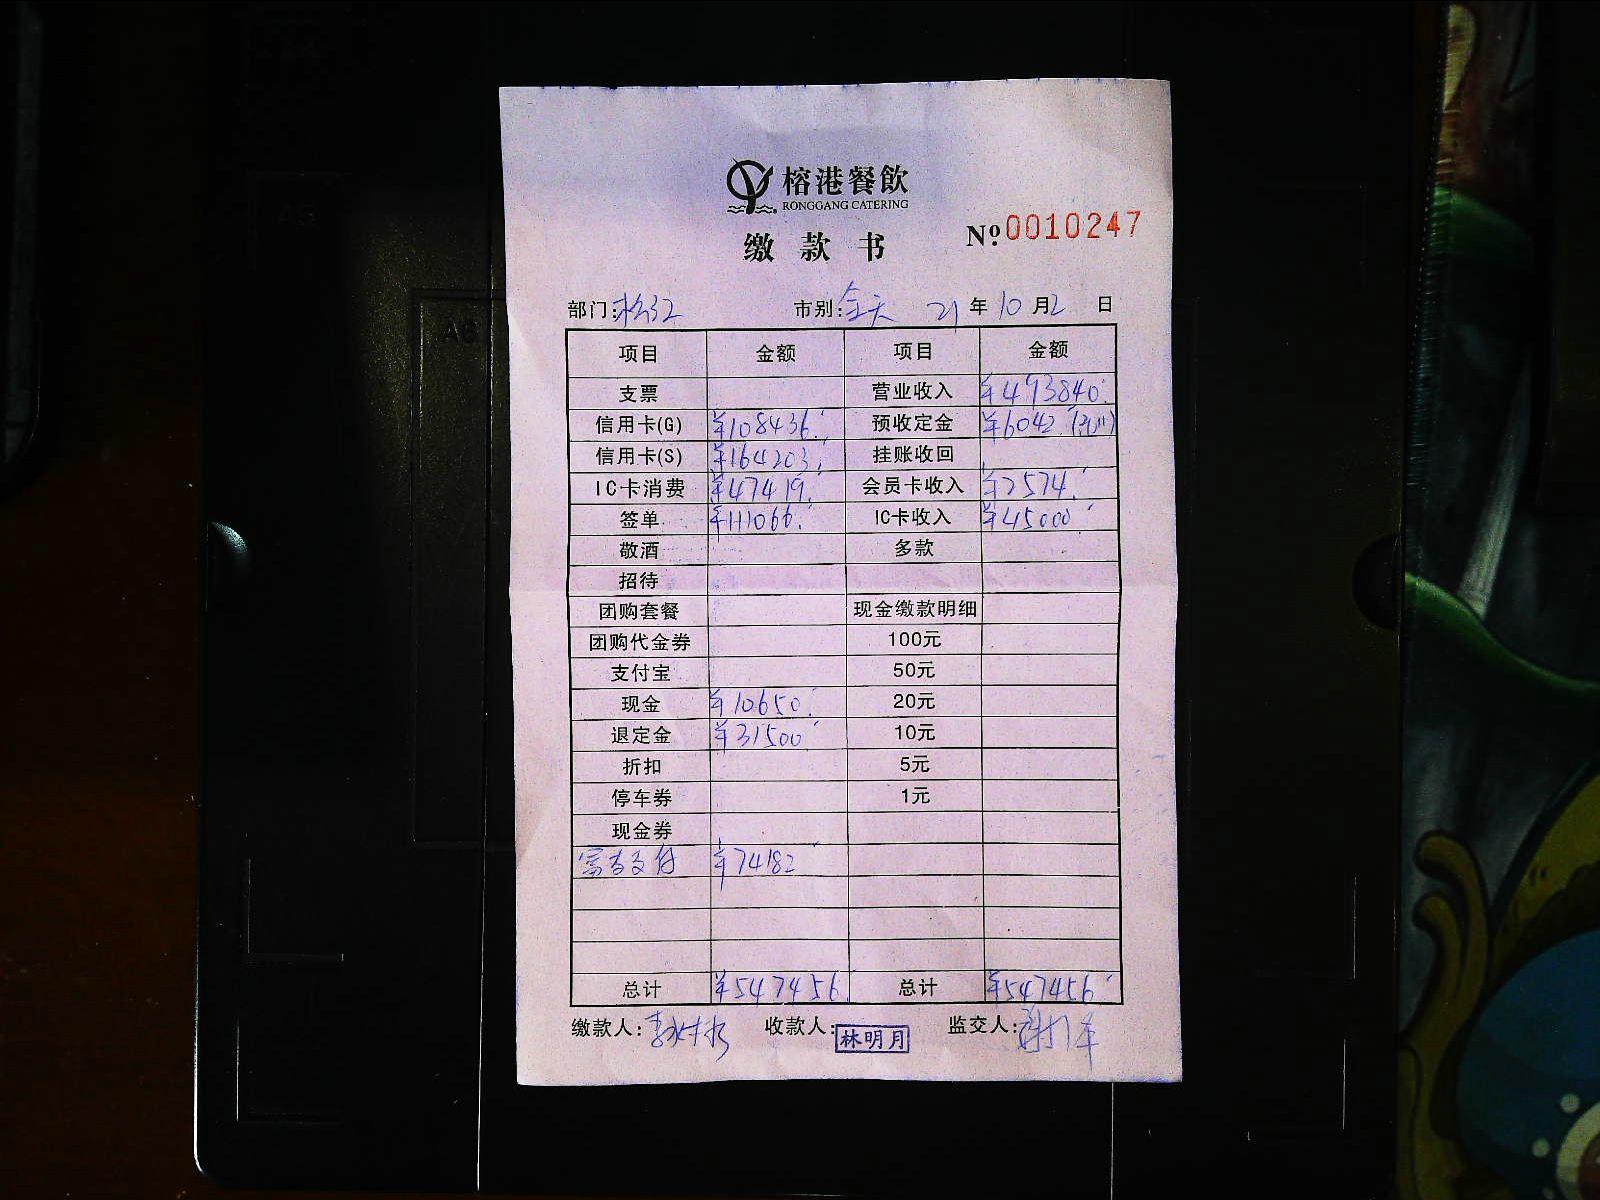 榕港餐飲
RONGGANG CATERING
缴款书
№ 0010247
部门:松江 市别:全天 21年10月2日
项目 金额 项目 金额
支票 营业收入 ¥493840
信用卡(G) ¥108436 预收定金 ¥6042
信用卡(S) ¥164203 挂账收回
IC卡消费 ¥47419 会员卡收入 ¥2574
签单 ¥111066 IC卡收入 ¥45000
敬酒 多款
招待
团购套餐 现金缴款明细
团购代金券 100元
支付宝 50元
现金 ¥10650 20元
退定金 ¥31500 10元
折扣 5元
停车券 1元
现金券
富友支付 ¥74182
总计 ¥547456 总计 ¥547456
缴款人: 收款人:林明月 监交人: